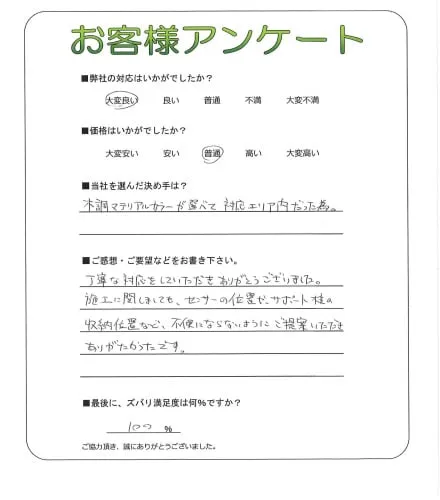 お客様アンケート
■弊社の対応はいかがでしたか？
大変良い 良い 普通 不満 大変不満
■価格はいかがでしたか？
大変安い 安い 普通 高い 大変高い
■当社を選んだ決め手は？
木調マテリアルカラーが選べて対応エリア内だった為。
■ご感想・ご要望などをお書き下さい。
丁寧な対応をしていただきありがとうございました。
施工に関しましても、センサーの位置や、サポート柱の
収納位置など、不便にならないようにご提案いただき
ありがたかったです。
■最後に、ズバリ満足度は何％ですか？
100 ％
ご協力頂き、誠にありがとうございました。